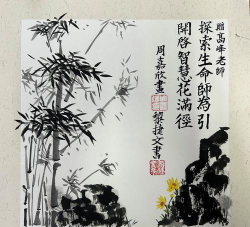 贈高峰老師
探索生命師為引
開啓智慧花滿徑
周嘉欣畫
黎捷文書